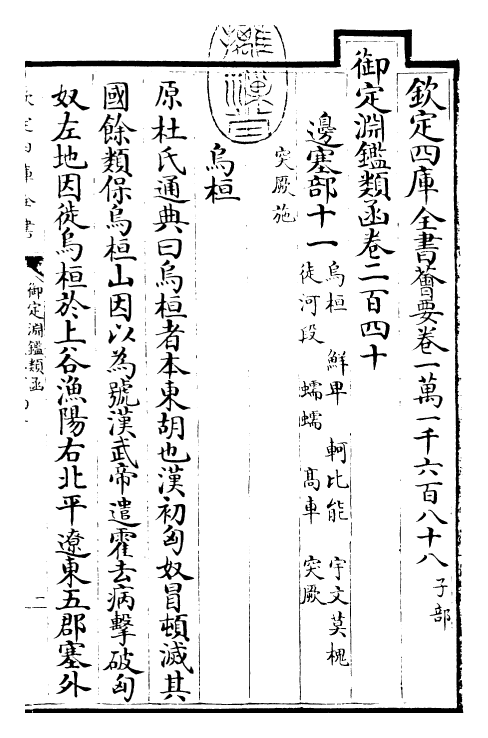 欽定四庫全書薈要卷一萬一千六百八十八 子部
御定淵鑑類函卷二百四十
邊塞部十一 烏桓 鮮卑 軻比能 宇文莫槐
徒河段 蠕蠕 高車 突厥
突厥施
烏桓
原杜氏通典曰烏桓者本東胡也漢初匈奴冒頓滅其
國餘類保烏桓山因以為號漢武帝遣霍去病擊破匈
奴左地因徙烏桓於上谷漁陽右北平遼東五郡塞外
御定淵鑑類函